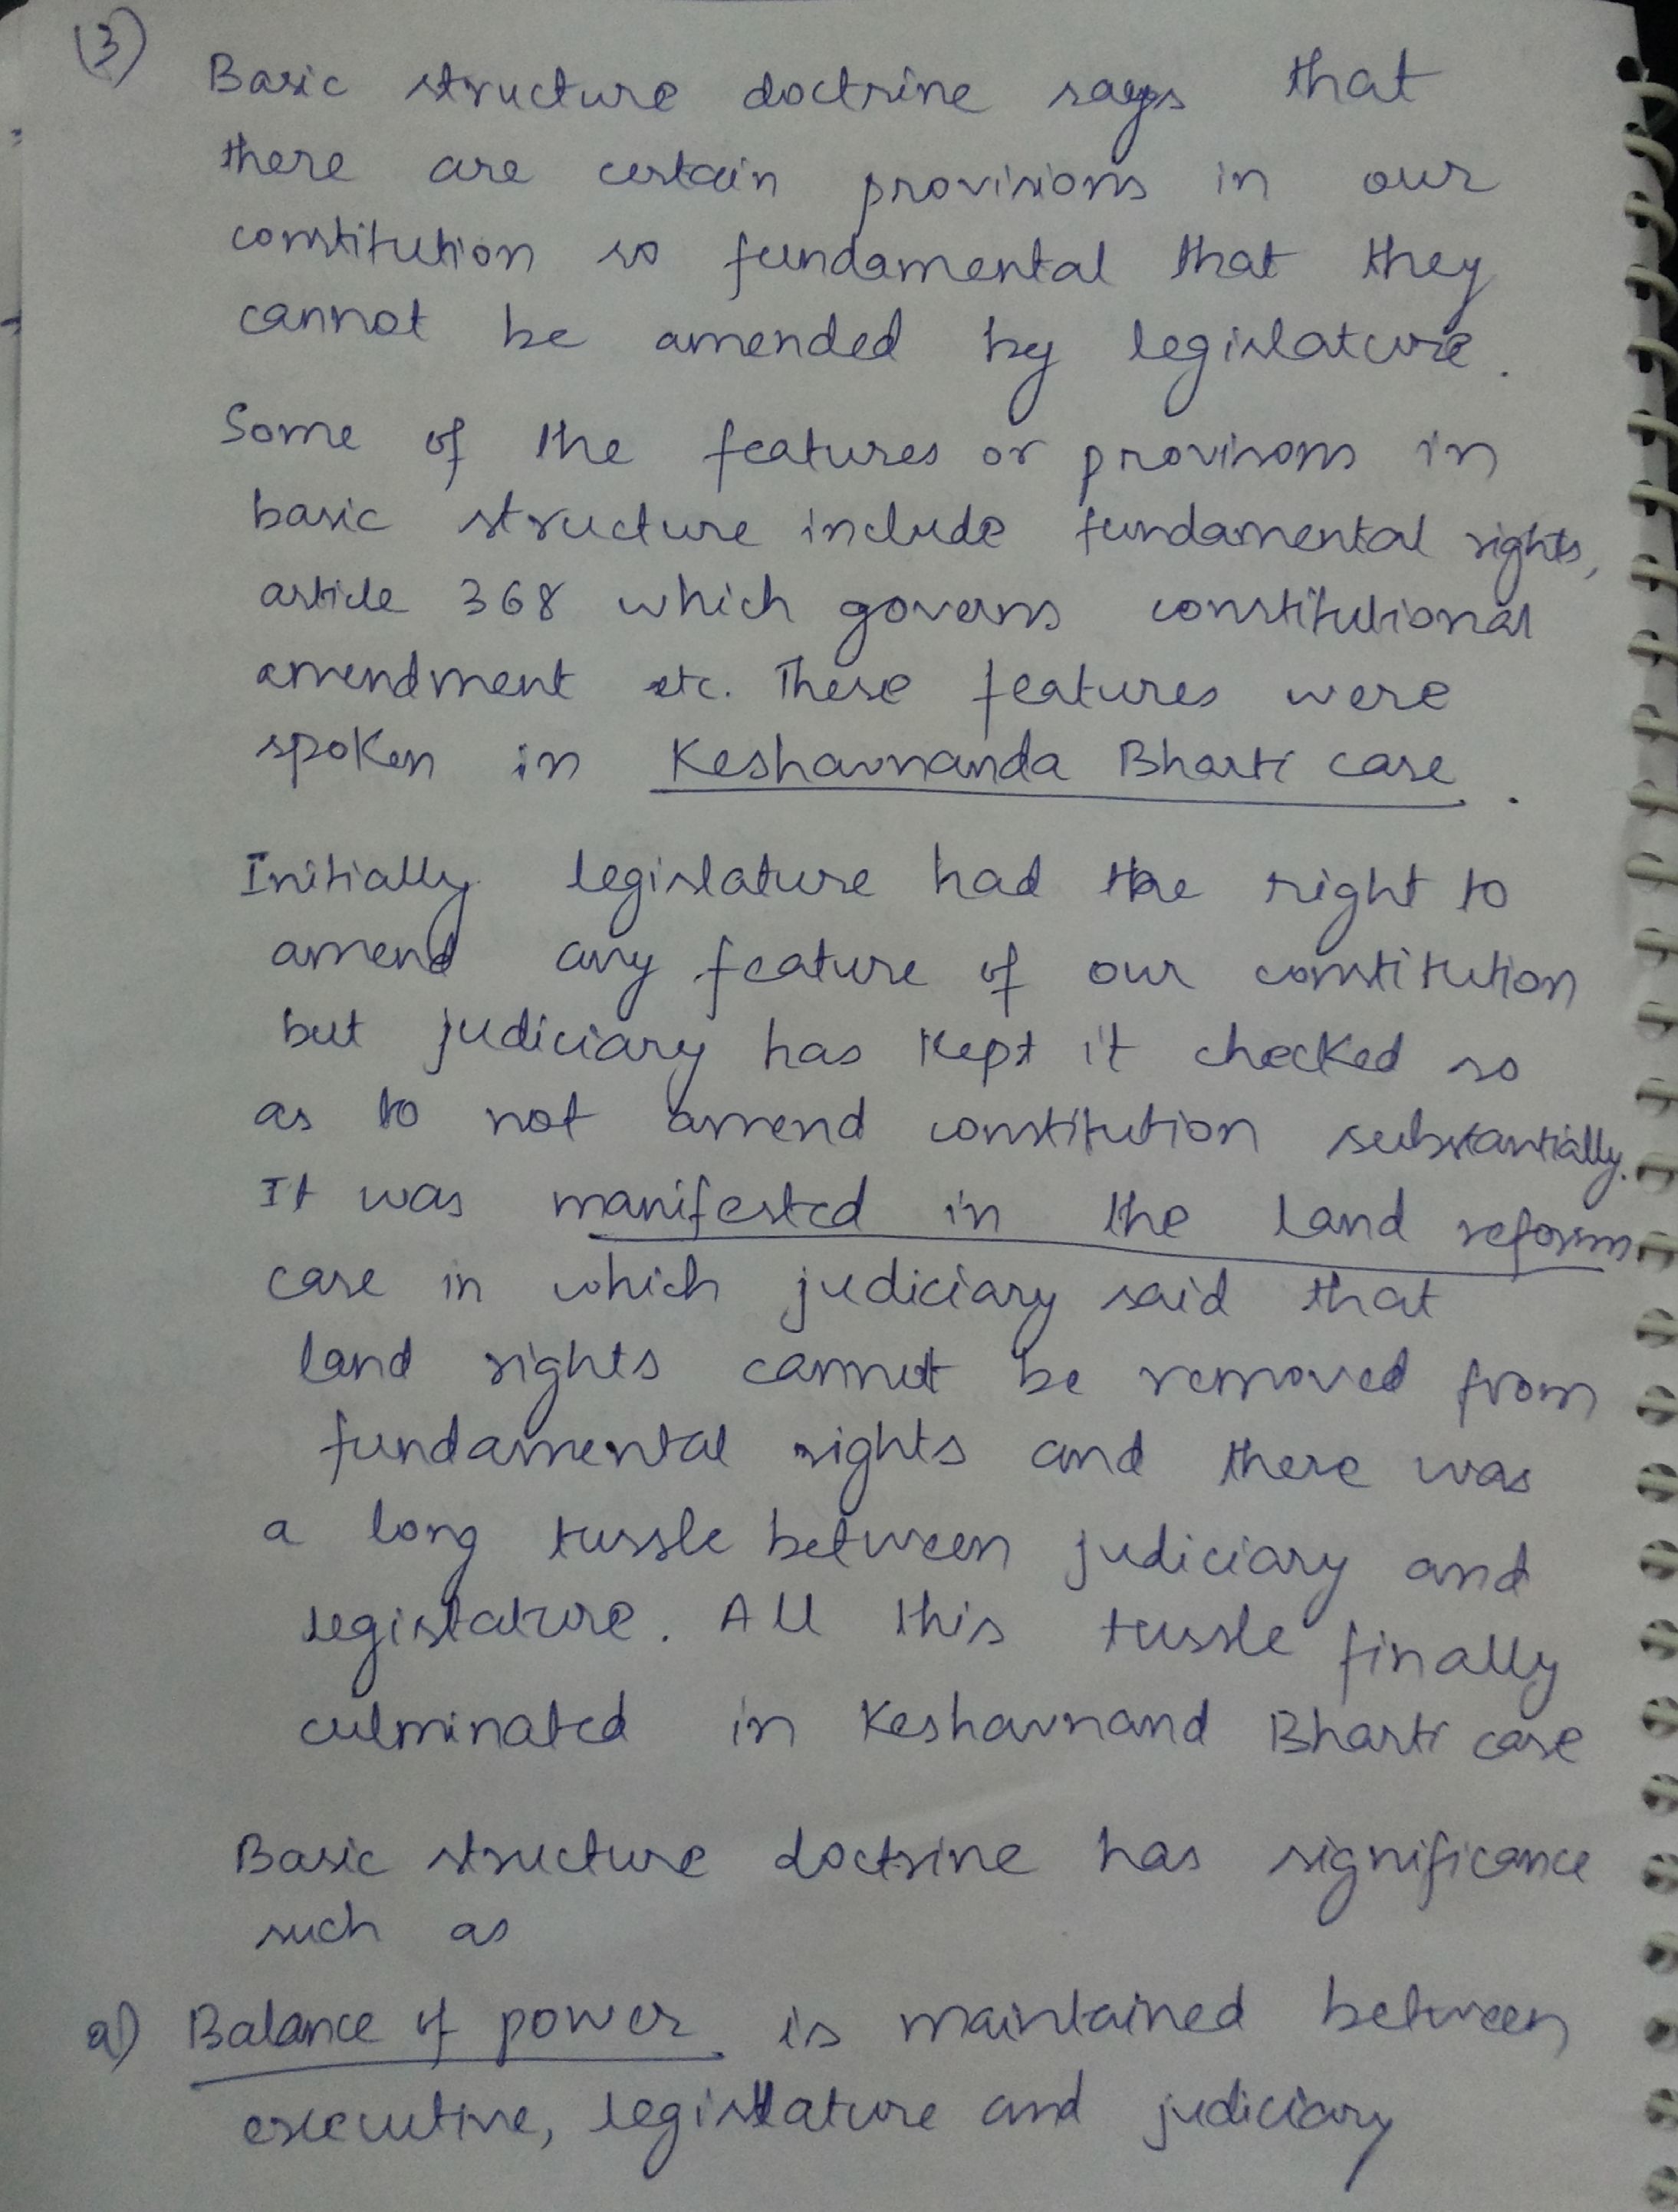 (3)
Basic structure doctrine says that
there are certain provisions in our
constitution so fundamental that they
cannot be amended by legislature.
Some of the features or provisons in
basic structure include fundamental rights,
article 368 which governs constitutional
amendment etc. These features were
spoken in Keshavnanda Bharti case.
Initially legislature had the right to
amend any feature of our constitution
but judiciary has kept it checked so
as to not amend constitution substantially.
It was manifested in the land reforms
case in which judiciary said that
land rights cannot be removed from
fundamental rights and there was
a long tussle between judiciary and
legislature. All this tussle finally
culminated in Keshavnand Bharti case
Basic structure doctrine has significance
such as
a) Balance of power is maintained between
executive, legislature and judiciary